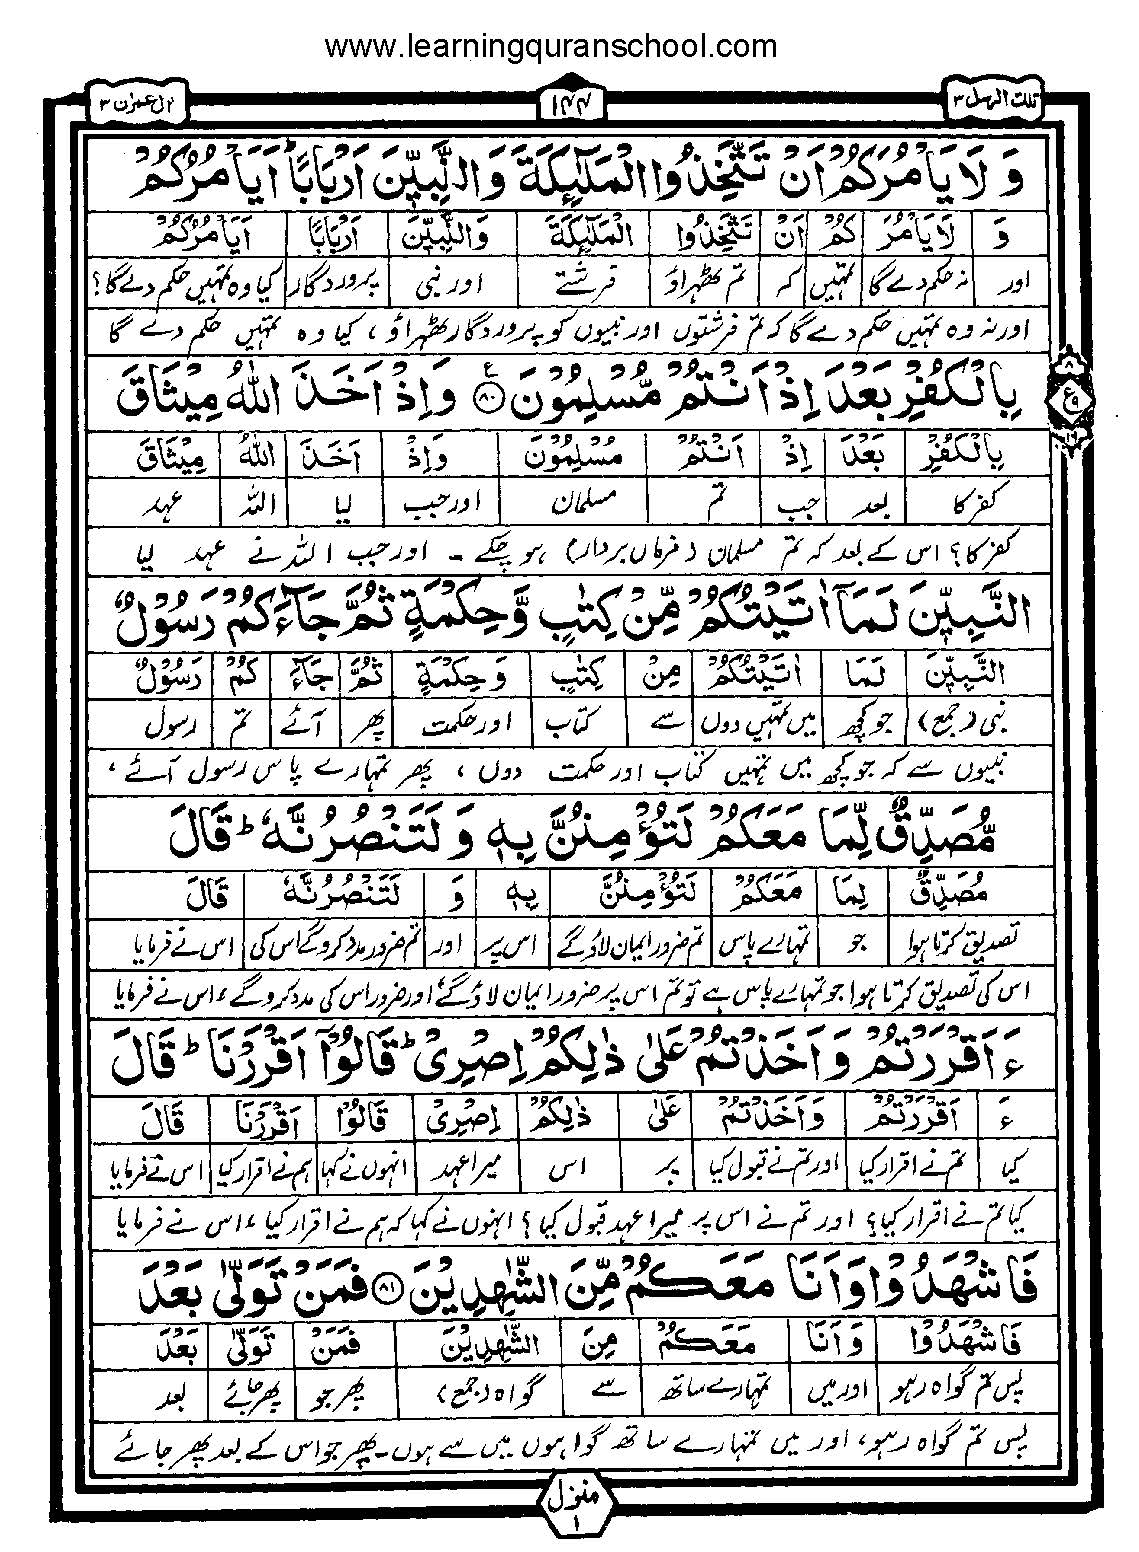 www.learningquranschool.com
تلك الرسل ٣
١٤٤
اٰل عمرٰن ٣
وَ لَا يَاْمُرَكُمْ اَنْ تَتَّخِذُوا الْمَلٰٓئِكَةَ وَالنَّبِيّٖنَ اَرْبَابًا ؕ اَيَاْمُرُكُمْ
وَ لَا يَاْمُرَ كُمْ اَنْ تَتَّخِذُوا الْمَلٰٓئِكَةَ وَالنَّبِيّٖنَ اَرْبَابًا اَيَاْمُرُكُمْ
اور نہ حکم دے گا تمہیں کہ تم ٹھہراؤ فرشتے اور نبی پروردگار کیا وہ تمہیں حکم دے گا؟
اور نہ وہ تمہیں حکم دے گا کہ تم فرشتوں اور نبیوں کو پروردگار ٹھہراؤ، کیا وہ تمہیں حکم دے گا
بِالْكُفْرِ بَعْدَ اِذْ اَنْتُمْ مُّسْلِمُوْنَ ۝٨٠ ع وَاِذْ اَخَذَ اللّٰهُ مِيْثَاقَ
٨
ع ٩
بِالْكُفْرِ بَعْدَ اِذْ اَنْتُمْ مُسْلِمُوْنَ وَاِذْ اَخَذَ اللّٰهُ مِيْثَاقَ
کفر کا بعد جب تم مسلمان اور جب لیا اللہ عہد
کفر کا؟ اس کے بعد کہ تم مسلمان (فرماں بردار) ہو چکے ۔ اور جب اللہ نے عہد لیا
النَّبِيّٖنَ لَمَاۤ اٰتَيْتُكُمْ مِّنْ كِتٰبٍ وَّحِكْمَةٍ ثُمَّ جَآءَكُمْ رَسُوْلٌ
النَّبِيّٖنَ لَمَا اٰتَيْتُكُمْ مِنْ كِتٰبٍ وَحِكْمَةٍ ثُمَّ جَآءَ كُمْ رَسُوْلٌ
نبی (جمع) جو کچھ میں تمہیں دوں سے کتاب اور حکمت پھر آئے تم رسول
نبیوں سے کہ جو کچھ میں تمہیں کتاب اور حکمت دوں، پھر تمہارے پاس رسول آئے،
مُّصَدِّقٌ لِّمَا مَعَكُمْ لَتُؤْمِنُنَّ بِهٖ وَلَتَنْصُرُنَّهٗ ؕ قَالَ
مُصَدِّقٌ لِمَا مَعَكُمْ لَتُؤْمِنُنَّ بِهٖ وَ لَتَنْصُرُنَّهٗ قَالَ
تصدیق کرتا ہوا جو تمہارے پاس تم ضرور ایمان لاؤ گے اس پر اور تم ضرور مدد کرو گے اس کی اس نے فرمایا
اس کی تصدیق کرتا ہوا جو تمہارے پاس ہے تو تم اس پر ضرور ایمان لاؤ گے اور ضرور اس کی مدد کرو گے، اس نے فرمایا
ءَاَقْرَرْتُمْ وَاَخَذْتُمْ عَلٰى ذٰلِكُمْ اِصْرِىْ ؕ قَالُوْۤا اَقْرَرْنَا ؕ قَالَ
ءَ اَقْرَرْتُمْ وَاَخَذْتُمْ عَلٰى ذٰلِكُمْ اِصْرِىْ قَالُوْا اَقْرَرْنَا قَالَ
کیا تم نے اقرار کیا اور تم نے قبول کیا پر اس میرا عہد انہوں نے کہا ہم نے اقرار کیا اس نے فرمایا
کیا تم نے اقرار کیا؟ اور تم نے اس پر میرا عہد قبول کیا؟ انہوں نے کہا کہ ہم نے اقرار کیا، اس نے فرمایا
فَاشْهَدُوْا وَاَنَا مَعَكُمْ مِّنَ الشّٰهِدِيْنَ ۝٨١ فَمَنْ تَوَلّٰى بَعْدَ
فَاشْهَدُوْا وَاَنَا مَعَكُمْ مِنَ الشّٰهِدِيْنَ فَمَنْ تَوَلّٰى بَعْدَ
پس تم گواہ رہو اور میں تمہارے ساتھ سے گواہ (جمع) پھر جو پھر جائے بعد
پس تم گواہ رہو، اور میں تمہارے ساتھ گواہوں میں سے ہوں۔ پھر جو اس کے بعد پھر جائے
منزل
١